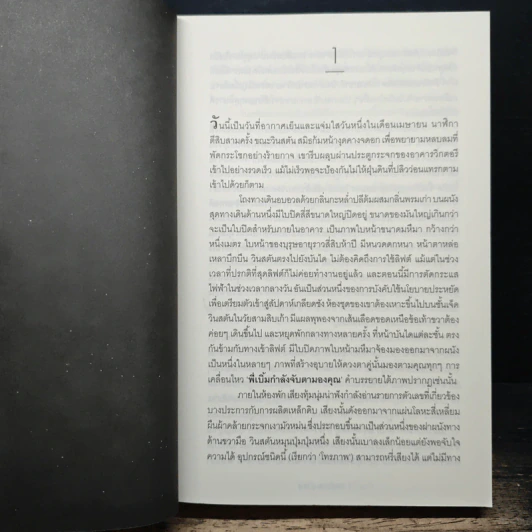 ๑
วันนี้เป็นวันที่อากาศเย็นและแจ่มใสวันหนึ่งในเดือนเมษายน นาฬิกา
ตีสิบสามครั้ง ขณะวินสตัน สมิธก้มหน้างุดคางจดอก เพื่อพยายามหลบลมที่
พัดกระโชกอย่างร้ายกาจ เขารีบผลุบผ่านประตูกระจกของอาคารวิกตอรี
เข้าไปอย่างรวดเร็ว แม้ไม่เร็วพอจะป้องกันไม่ให้ฝุ่นดินที่ปลิวว่อนแทรกตาม
เข้าไปด้วยก็ตาม
โถงทางเดินอบอวลด้วยกลิ่นกะหล่ำปลีต้มผสมกลิ่นพรมเก่า บนผนัง
สุดทางเดินด้านหนึ่งมีใบปิดสี่สีขนาดใหญ่ปิดอยู่ ขนาดของมันใหญ่เกินกว่า
จะเป็นใบปิดสำหรับภายในอาคาร เป็นภาพใบหน้าขนาดมหึมา กว้างกว่า
หนึ่งเมตร ใบหน้าของบุรุษอายุราวสี่สิบห้าปี มีหนวดดกหนา หน้าตาหล่อ
เหลาบึกบึน วินสตันตรงไปยังบันได ไม่ต้องคิดถึงการใช้ลิฟต์ แม้แต่ในช่วง
เวลาที่ปรกติที่สุดลิฟต์ก็ไม่ค่อยทำงานอยู่แล้ว และตอนนี้มีการตัดกระแส
ไฟฟ้าในช่วงเวลากลางวัน อันเป็นส่วนหนึ่งของการบังคับใช้นโยบายประหยัด
เพื่อเตรียมตัวเข้าสู่สัปดาห์เกลียดชัง ห้องชุดของเขาต้องเหาะขึ้นไปบนชั้นเจ็ด
วินสตันในวัยสามสิบเก้า มีแผลพุพองจากเส้นเลือดขอดเหนือข้อเท้าขวาต้อง
ค่อยๆ เดินขึ้นไป และหยุดพักกลางทางหลายครั้ง ที่หน้าบันไดแต่ละชั้น ตรง
กันข้ามกับทางเข้าลิฟต์ มีใบปิดภาพใบหน้ามหึมาจ้องมองออกมาจากผนัง
เป็นหนึ่งในหลายๆ ภาพที่สร้างอุบายให้ดวงตาคู่นั้นมองตามคุณทุกๆ การ
เคลื่อนไหว 'พี่เบิ้มกำลังจับตามองคุณ' คำบรรยายใต้ภาพปรากฏเช่นนั้น
ภายในห้องพัก เสียงทุ้มนุ่มน่าฟังกำลังอ่านรายการตัวเลขที่เกี่ยวข้อง
บางประการกับการผลิตเหล็กดิบ เสียงนั้นดังออกมาจากแผ่นโลหะสี่เหลี่ยม
ผืนผ้าคล้ายกระจกเงามัวหม่น ซึ่งประกอบขึ้นมาเป็นส่วนหนึ่งของฝาผนังทาง
ด้านขวามือ วินสตันหมุนปุ่มปุ่มหนึ่ง เสียงนั้นเบาลงเล็กน้อยแต่ยังพอจับใจ
ความได้ อุปกรณ์ชนิดนี้ (เรียกว่า 'โทรภาพ') สามารถหรี่เสียงได้ แต่ไม่มีทาง